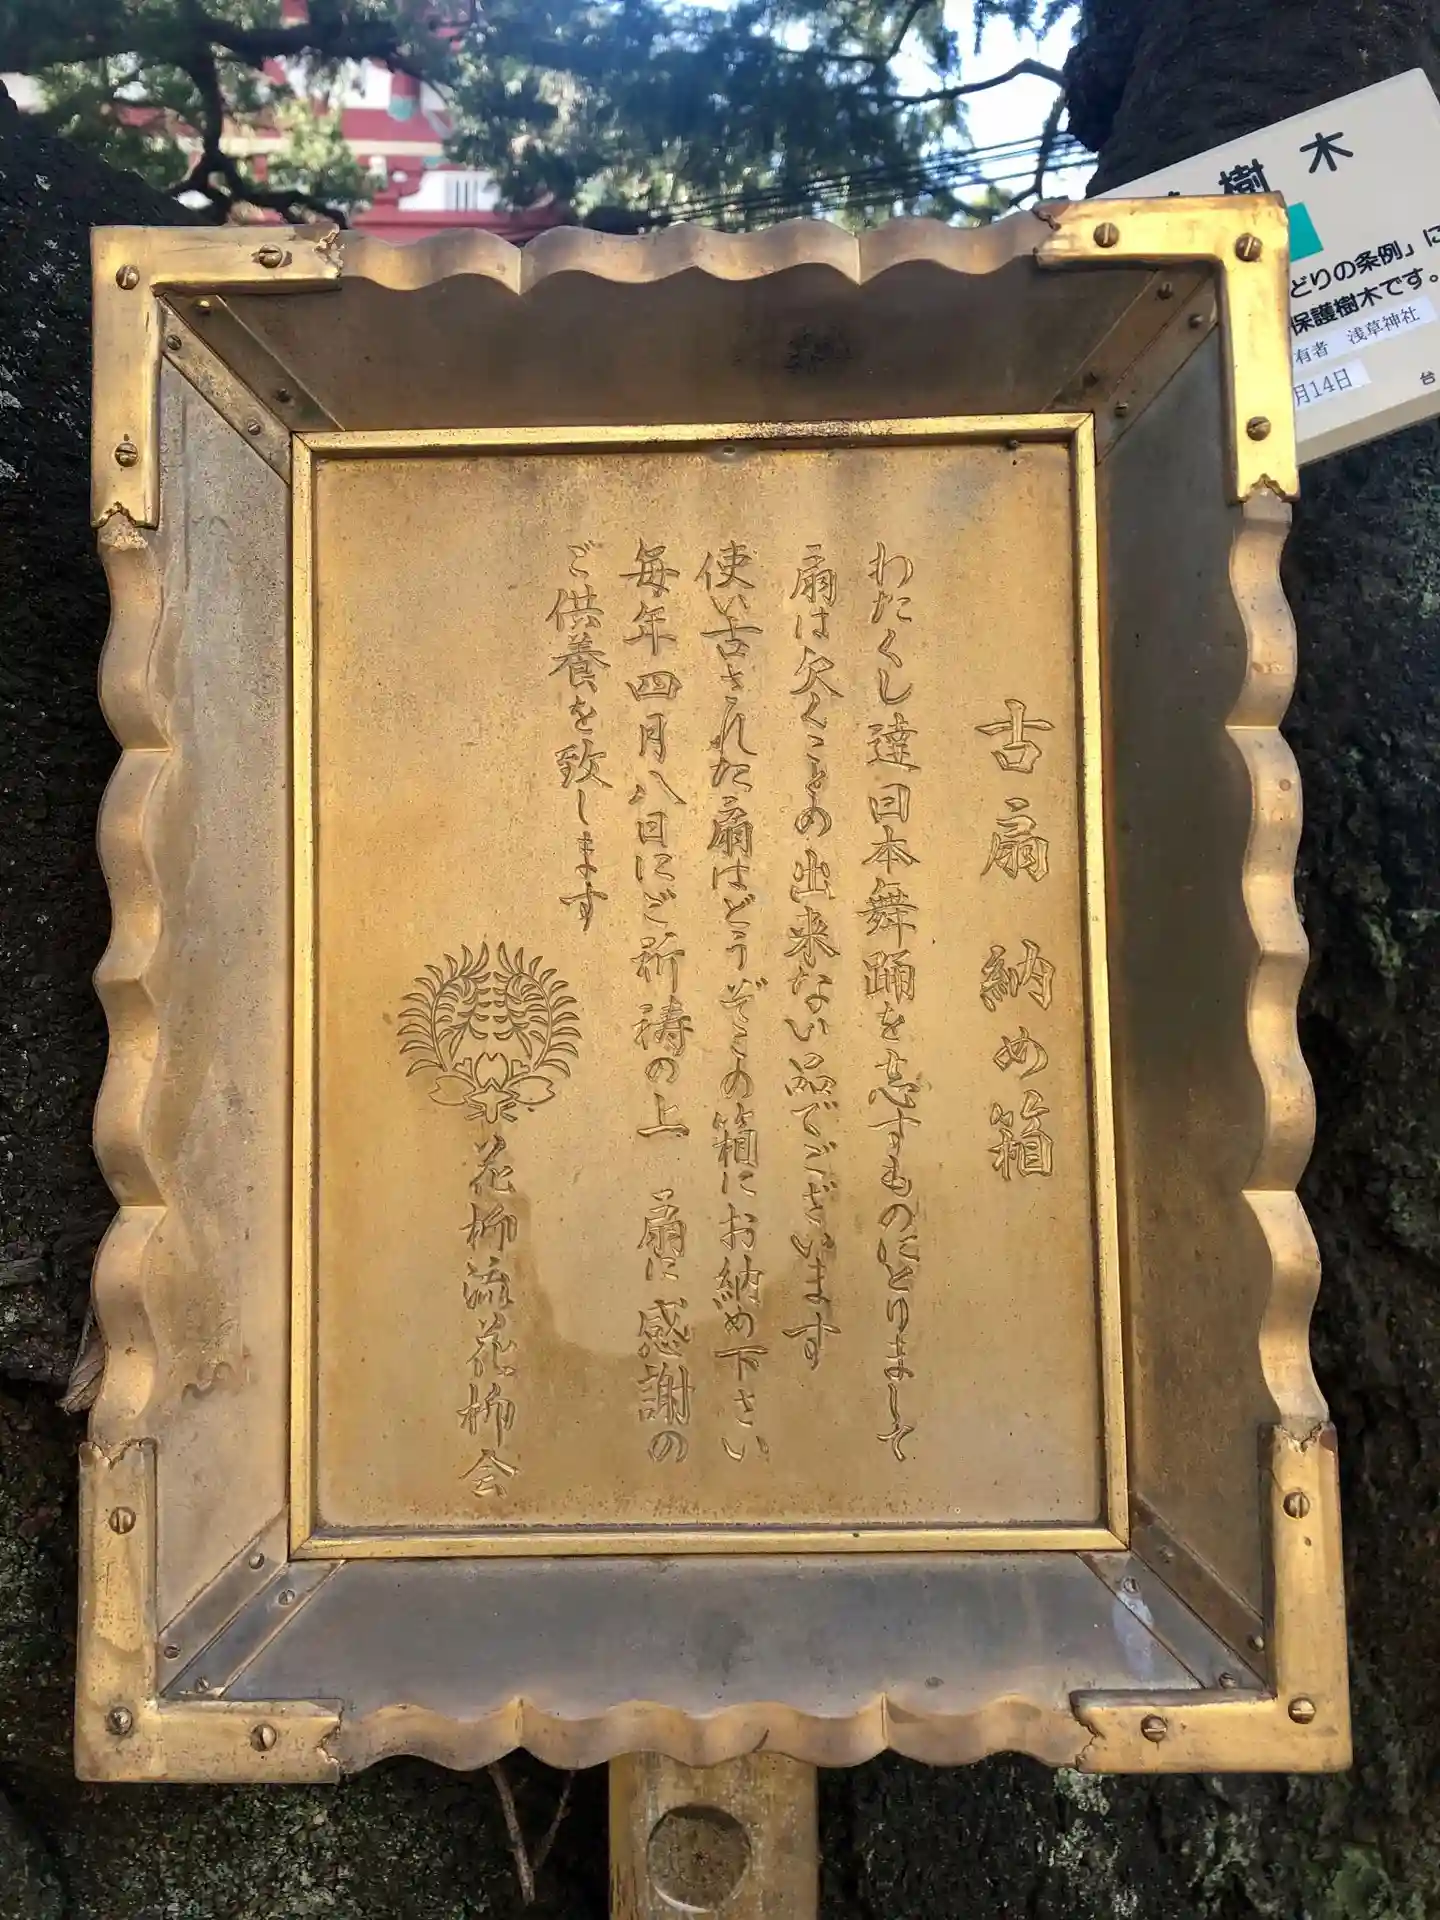 古扇納め箱
わたくし達日本舞踊を志すものにとりまして
扇は欠くことの出来ない品でございます
使い古された扇はどうぞこの箱にお納め下さい
毎年四月八日にご祈祷の上 扇に感謝の
ご供養を致します
花柳流花柳会
樹木
どりの条例」に
保護樹木です。
有者 浅草神社
月14日
台